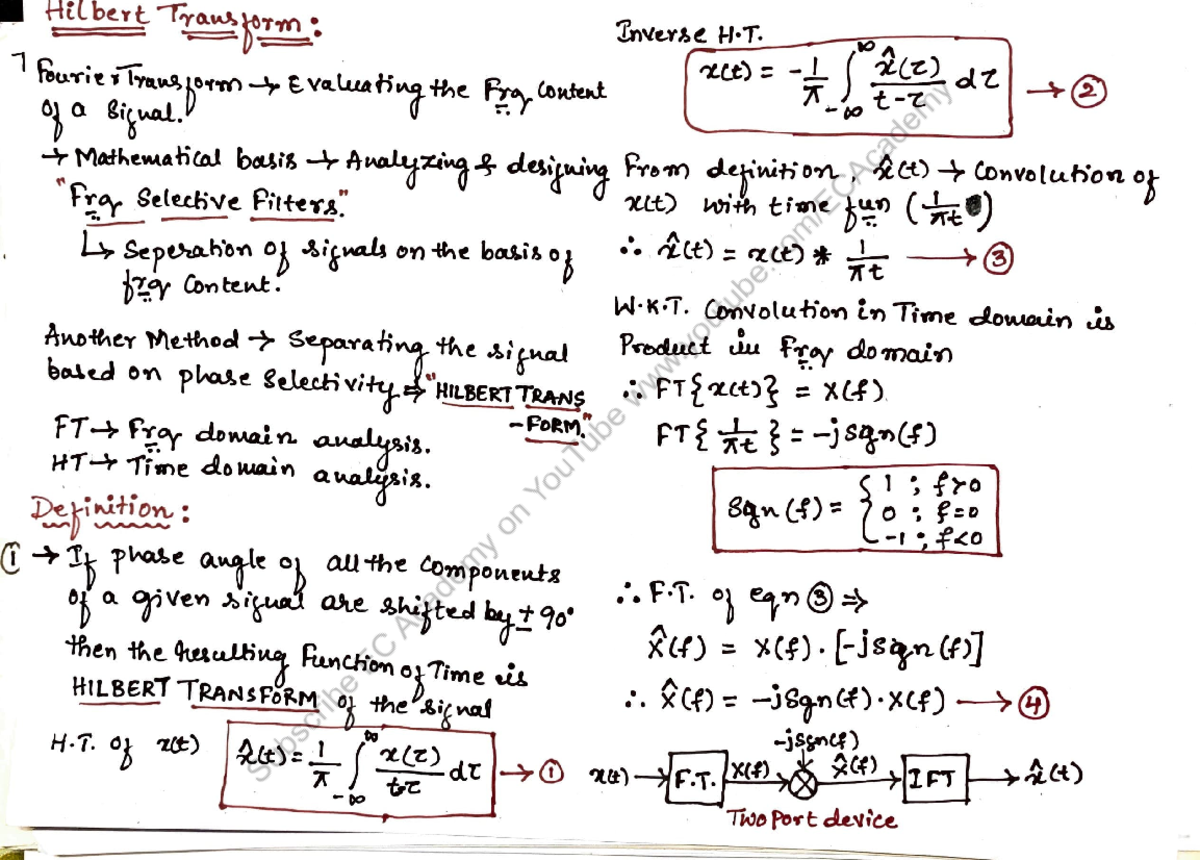 Hilbert Transform:
Fourier Transform → Evaluating the Frq. Content
of a signal.
→ Mathematical basis → Analyzing & designing
"Frq Selective Filters."
↳ Seperation of signals on the basis of
frq Content.
Another Method → Separating the signal
based on phase selectivity ⇒ "HILBERT TRANS
-FORM."
FT → Frq domain analysis.
HT → Time domain analysis.
Definition:
① → If phase angle of all the components
of a given signal are shifted by ± 90°
then the resulting Function of Time is
HILBERT TRANSFORM of the signal
H.T. of x(t) x̂(t) = 1/π ∫_{-∞}^{∞} x(τ)/(t-τ) dτ → ①
Inverse H.T.
x(t) = -1/π ∫_{-∞}^{∞} x̂(τ)/(t-τ) dτ → ②
From definition, x̂(t) → Convolution of
x(t) with time fun (1/πt)
∴ x̂(t) = x(t) * 1/πt → ③
W.K.T. Convolution in Time domain is
Product in Frqy domain
∴ FT{x(t)} = X(f)
FT{1/πt} = -jsgn(f)
Sgn(f) = { 1 ; f>0
0 ; f=0
-1 ; f<0
∴ F.T. of eqn ③ ⇒
X̂(f) = X(f) . [-jsgn(f)]
∴ X̂(f) = -jSgn(f) . X(f) → ④
-jSgn(f)
x(t) → F.T. X(f) → ⊗ X̂(f) → IFT → x̂(t)
Two port device
Subscribe EC Academy on YouTube www.youtube.com/ECAcademy